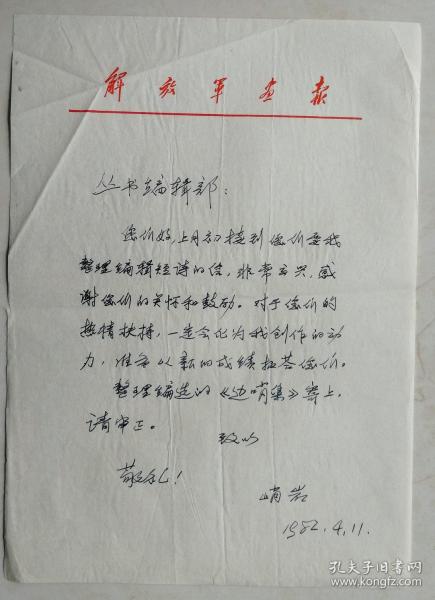 解放军画报
丛书编辑部：
您们好，上月初接到您们要我
整理编辑短诗的信，非常高兴，感
谢您们的关怀和鼓励。对于您们的
热情扶持，一定会化为我创作的动
力，准备以新的成绩报答您们。
整理编选的《边哨集》寄上，
请审正。
致以
敬礼！
峭岩
1982.4.11.
孔夫子旧书网
www.kongfz.com